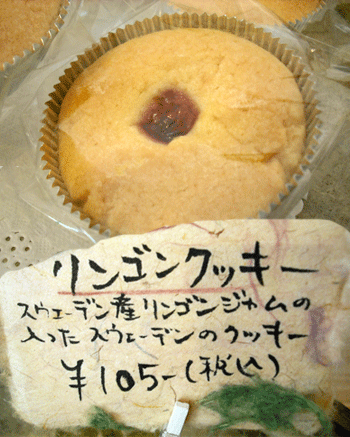 リンゴンクッキー
スウェーデン産リンゴンジャムの
入ったスウェーデンのクッキー
¥105-(税込)